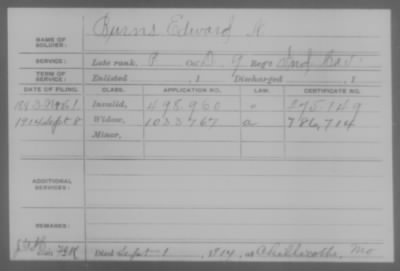 NAME OF SOLDIER: Burns Edward
SERVICE: Late rank, P Co. D, 9 Reg't Ind. Cav.
TERM OF SERVICE: Enlisted , 1 Discharged , 1
DATE OF FILING. CLASS. APPLICATION NO. LAW. CERTIFICATE NO.
1883 Nov 1 Invalid, 498,960 " 275149
1914 Sept 8 Widow, 1033767 a 786,714
Minor,
ADDITIONAL SERVICES:
REMARKS:
Died Sept 1, 1914, at Chillicothe, Mo